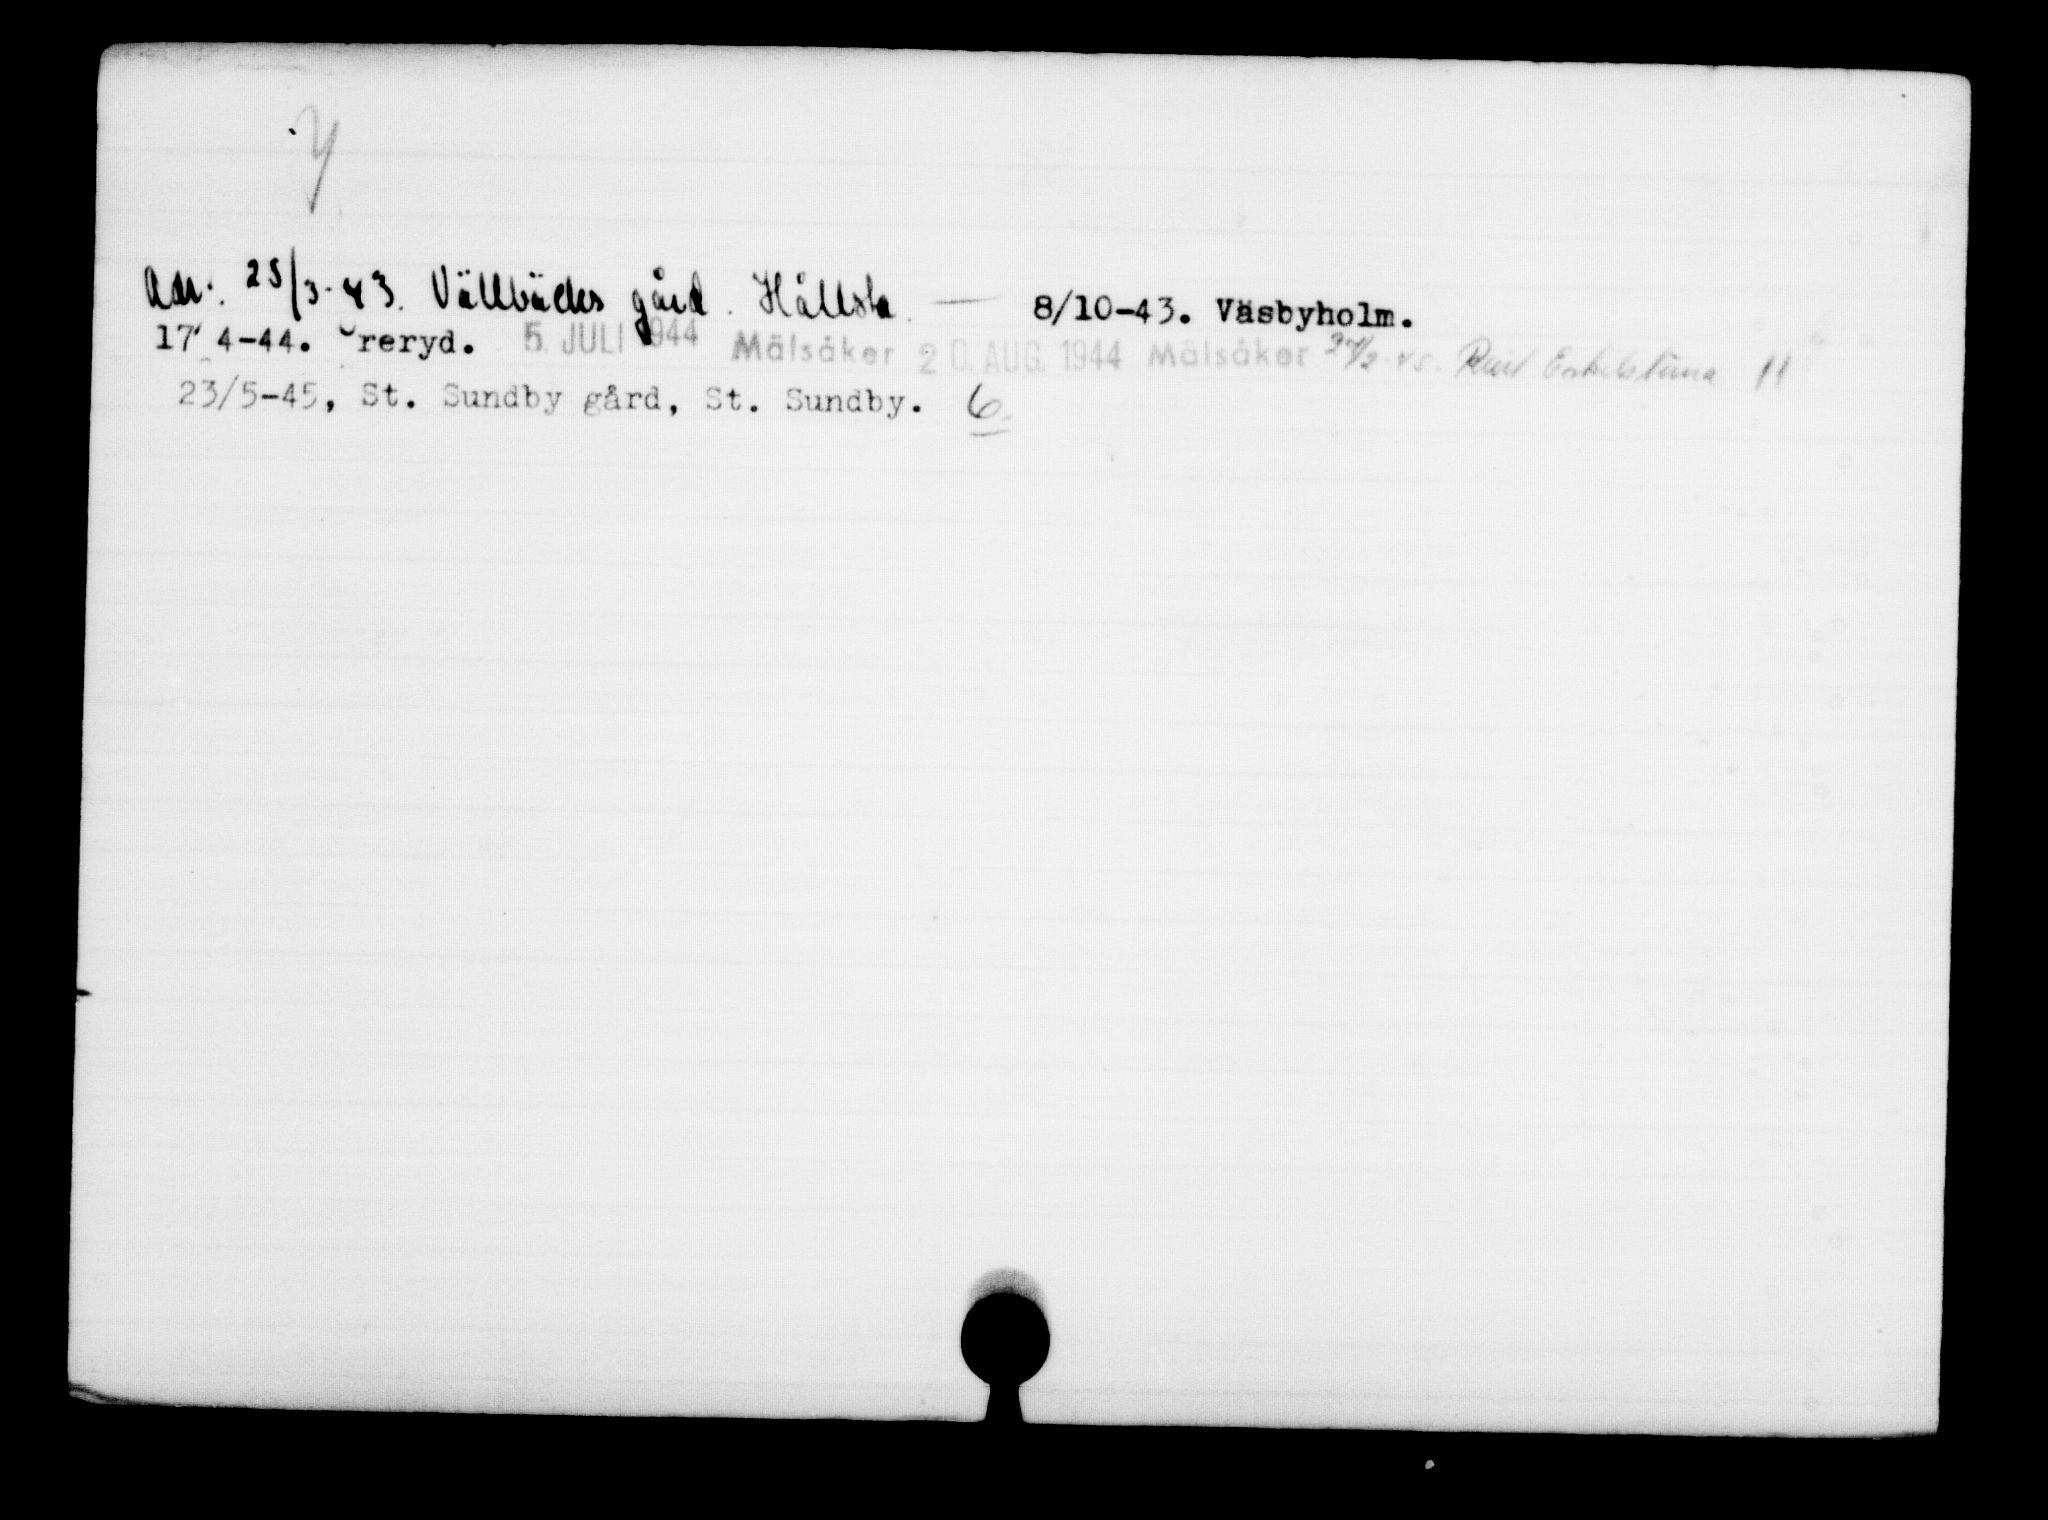 y
Adr. 25/3-43. Vällbäcks gård. Hållsta. — 8/10-43. Väsbyholm.
17 4-44. reryd. 5. JULI 1944 Mälsåker 20. AUG. 1944 Mälsåker 27/2-45. Eskilstuna
23/5-45, St. Sundby gård, St. Sundby. 6